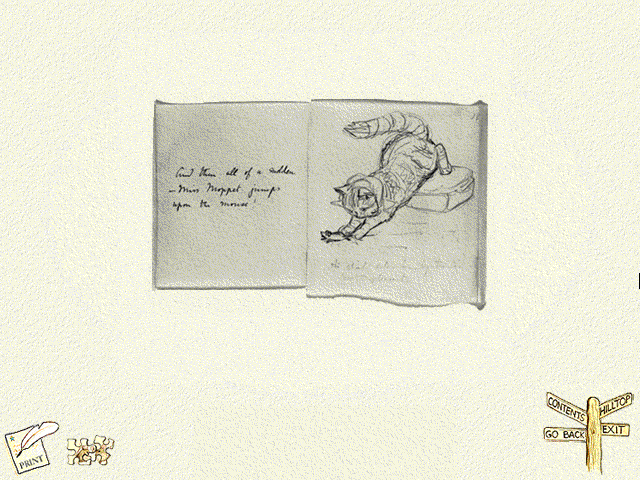 And then all of a sudden
Miss Moppet jumps
upon the mouse!
PRINT
CONTENTS
HILLTOP
GO BACK
EXIT